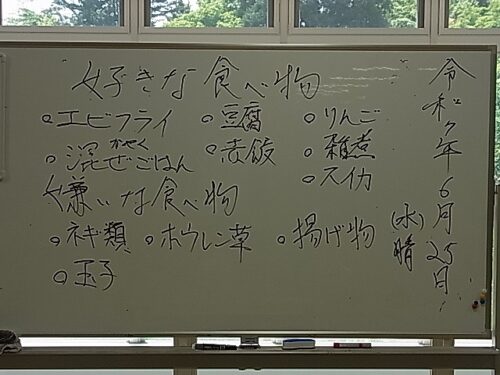 令和7年6月25日
(水)晴
好きな食べ物
○エビフライ ○豆腐 ○りんご
かやく
○混ぜごはん ○赤飯 ○雑煮
○スイカ
嫌いな食べ物
○ネギ類 ○ホウレン草 ○揚げ物
○玉子